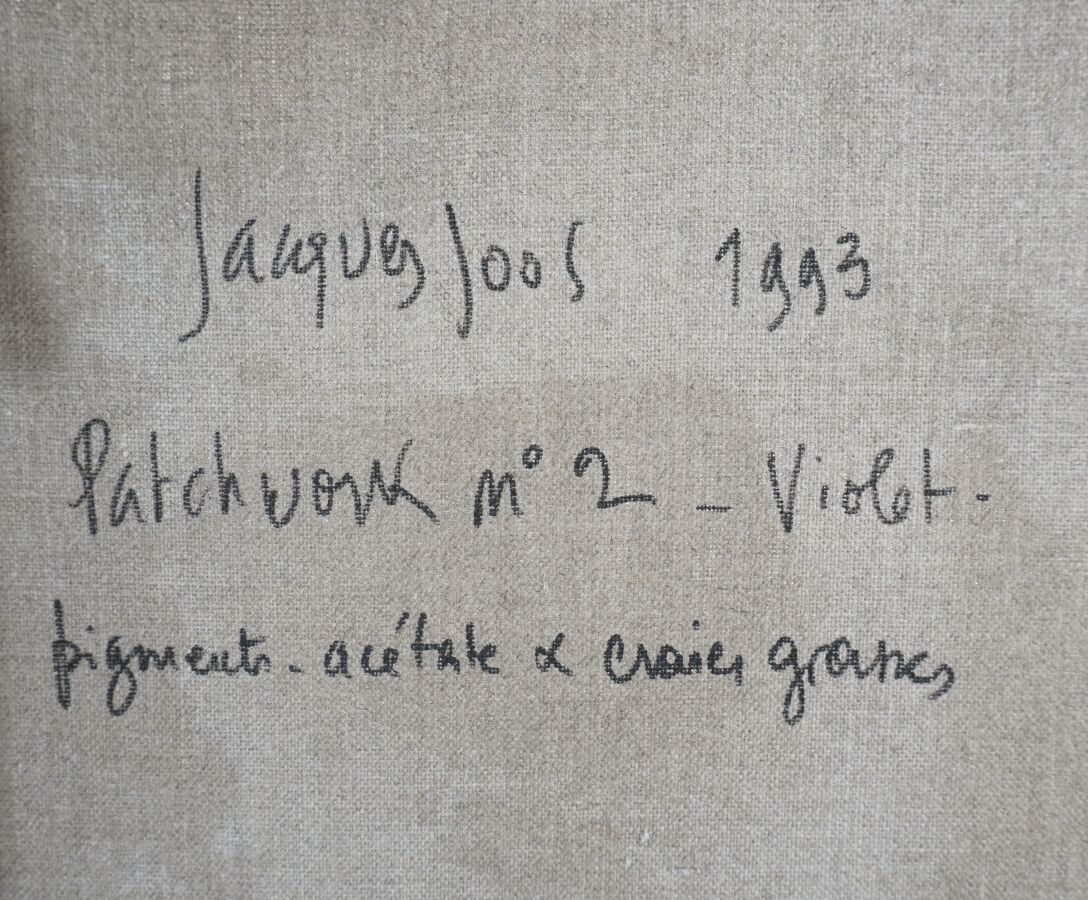 Jacques Joos 1993
Patchwork n° 2 - Violet -
pigments - acétate & craies grasses